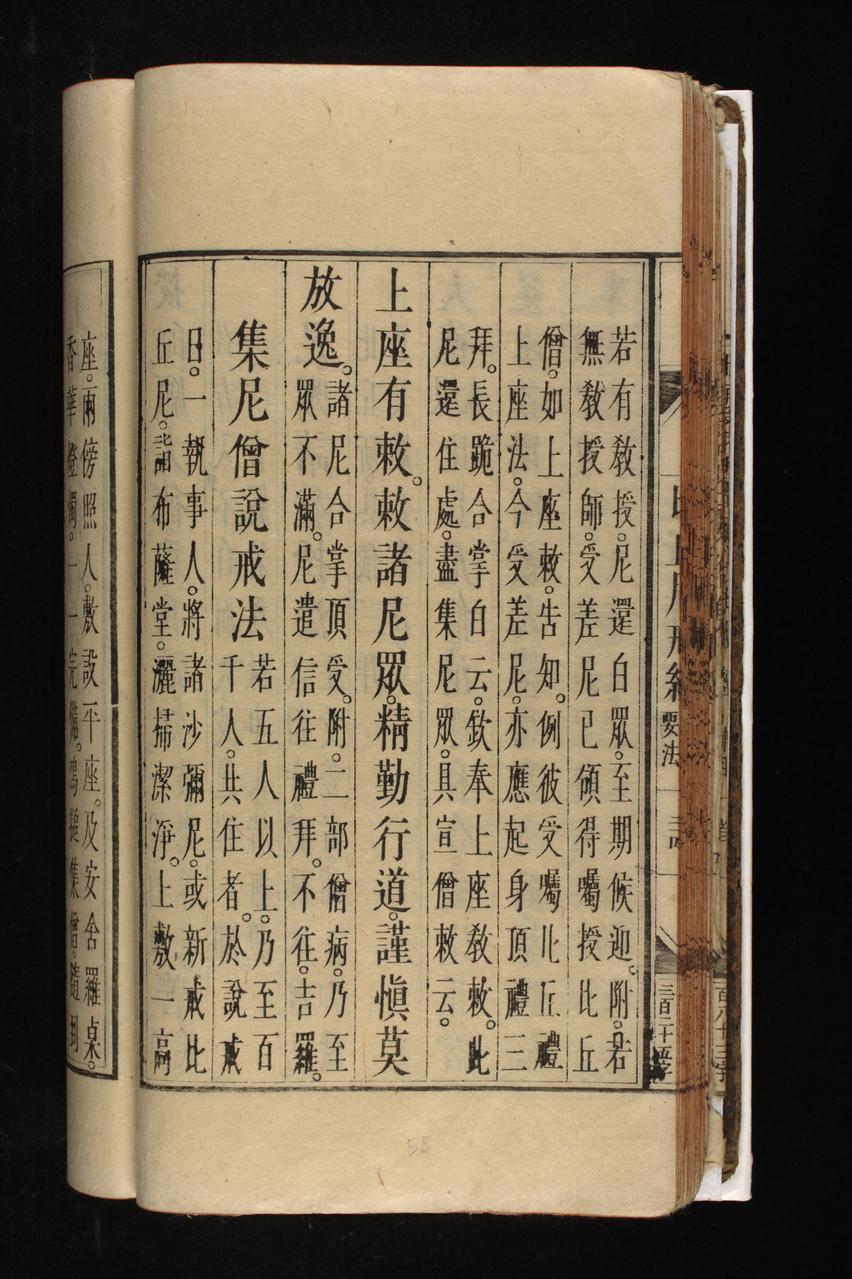 若有教授。尼還白眾。至期候迎。附。若
無教授師。受差尼已領得囑授比丘
僧。如上座敕。告知。例彼受囑比丘禮
上座法。今受差尼。亦應起身頂禮三
拜。長跪合掌白云。欽奉上座教敕。此
尼還住處。盡集尼眾。具宣僧敕云。
上座有敕。敕諸尼眾。精勤行道。謹慎莫
放逸。
諸尼合掌頂受。附。二部僧病。乃至
眾不滿。尼遣信往禮拜。不往。吉羅。
集尼僧說戒法
若五人以上。乃至百
千人。共住者。於說戒
日。一執事人。將諸沙彌尼。或新戒比
丘尼。詣布薩堂。灑掃潔淨。上敷一高
座。兩傍照人。敷設平座。及安舍羅桌。
香華燈燭。一一完備。鳴搥集僧。隨到
要法
三百二十五字
58